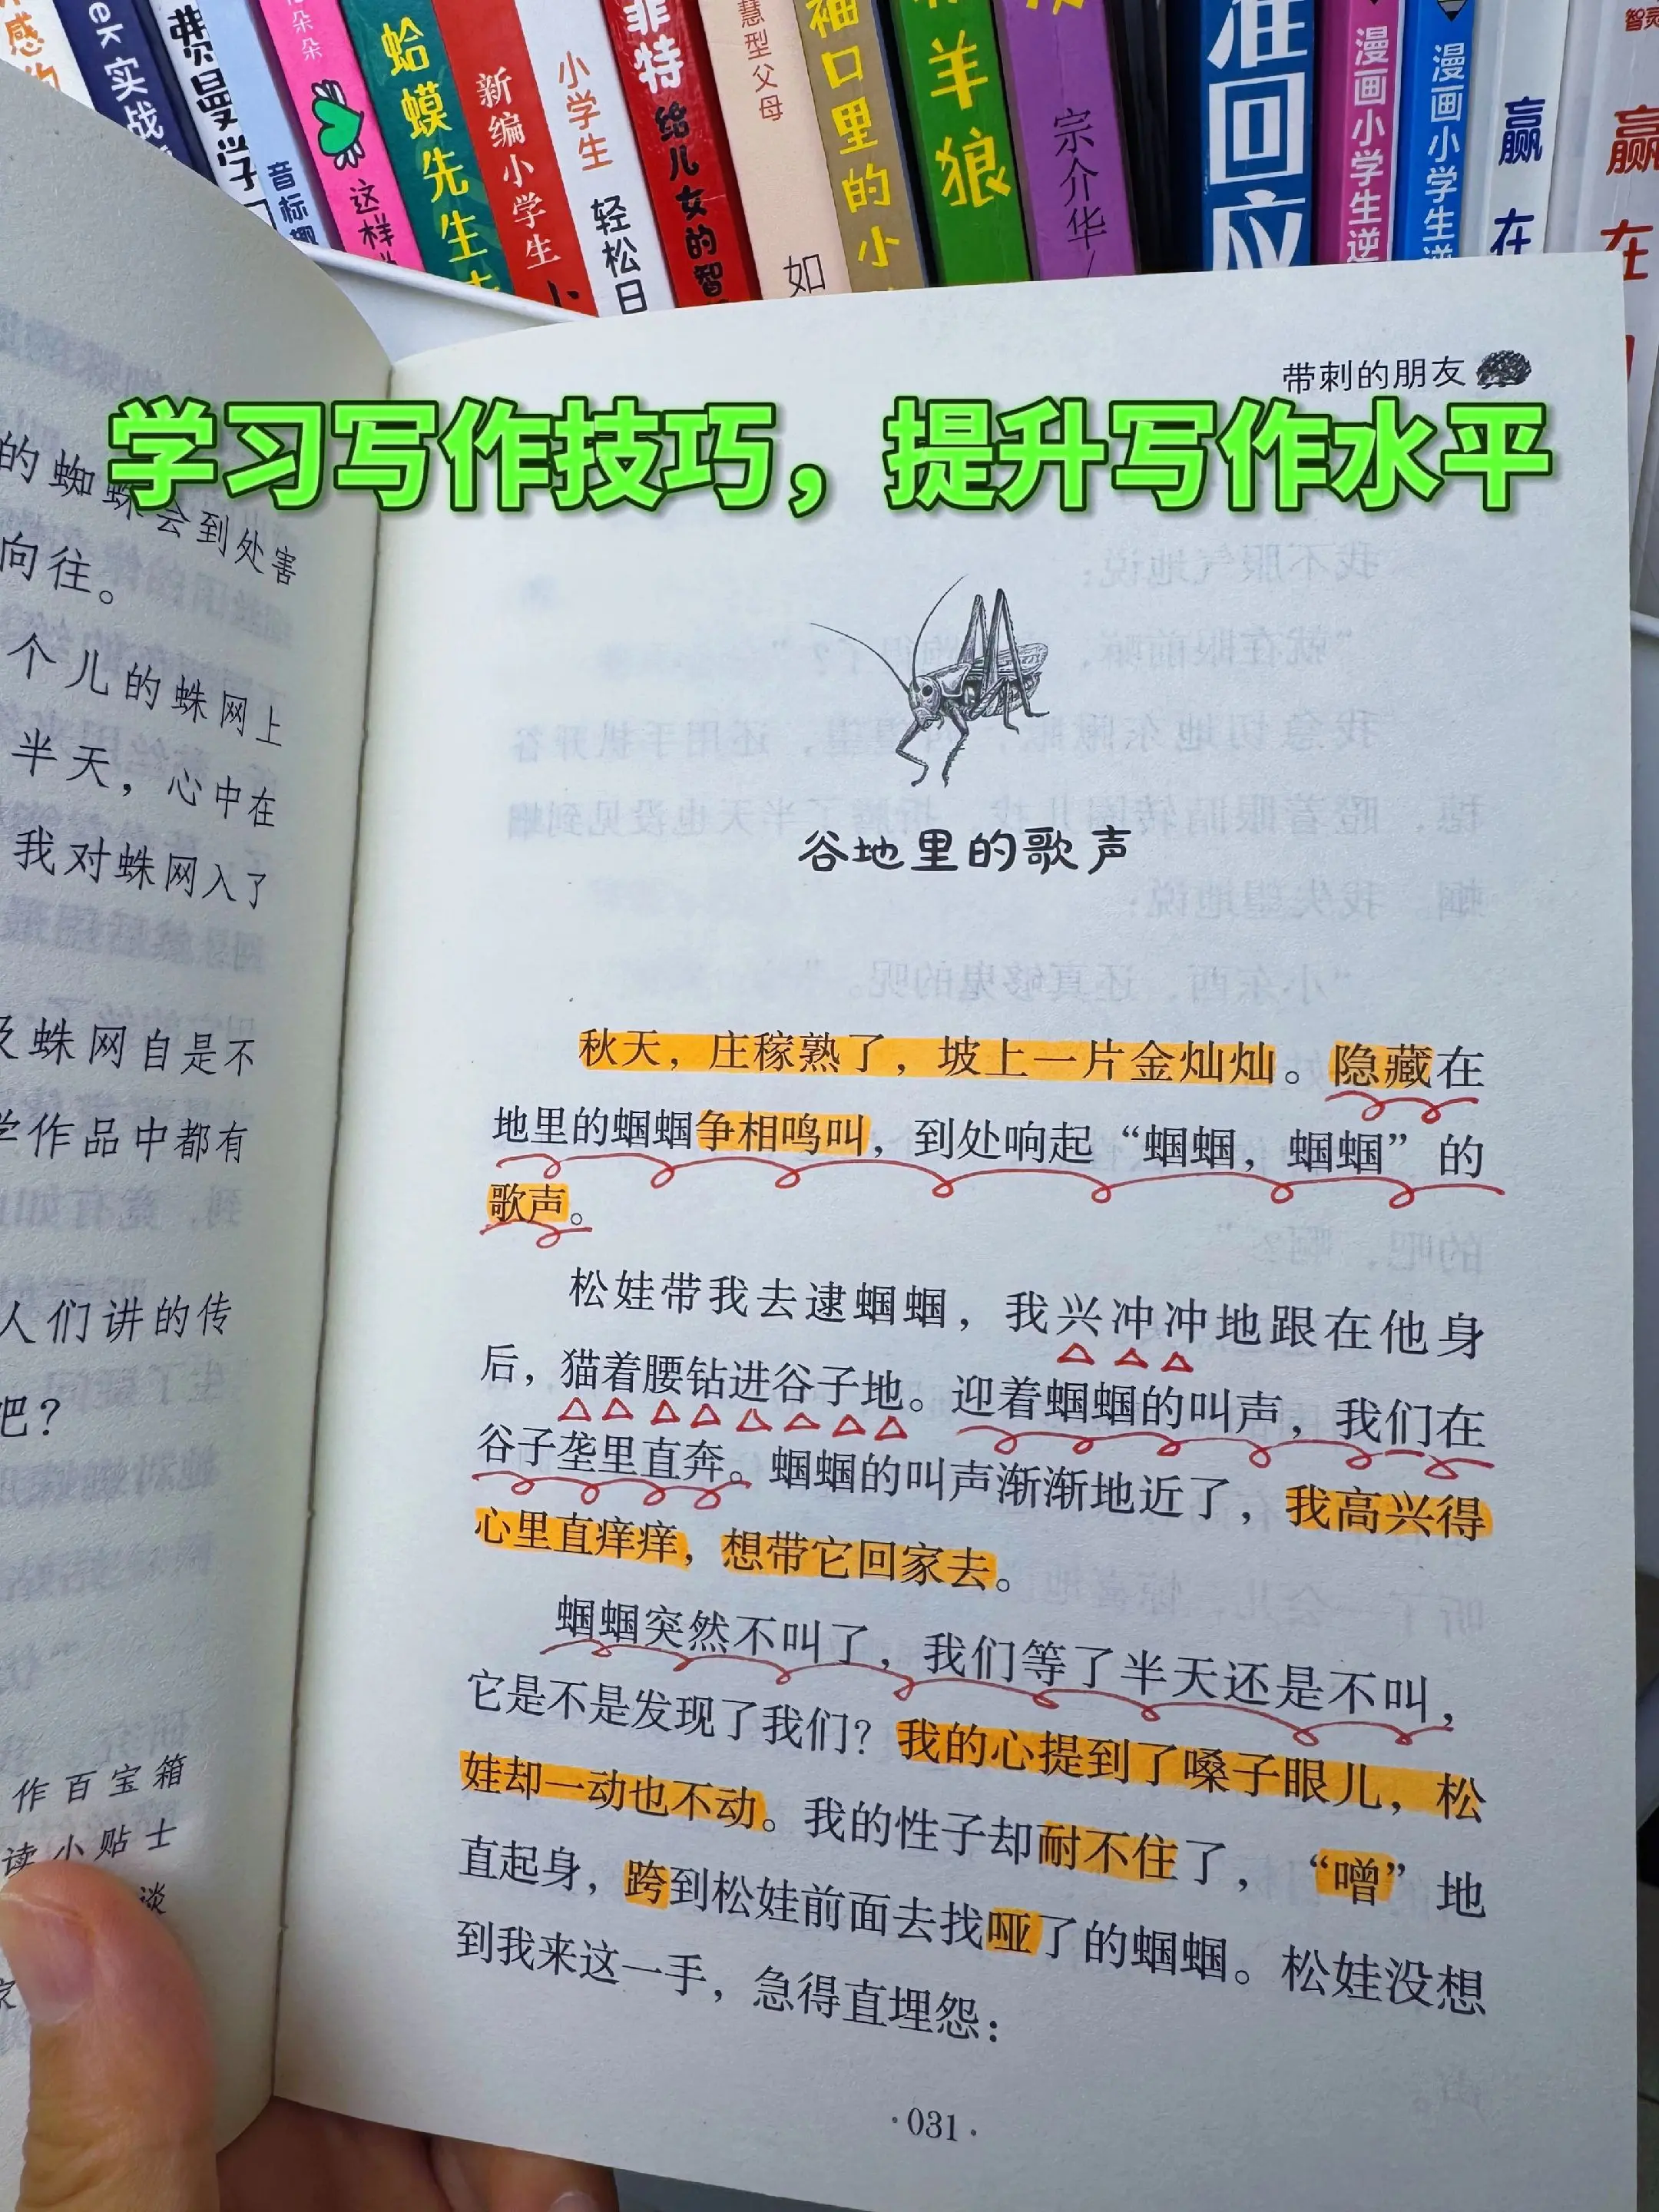 感的
ek 实战
费曼学习
音标趣
朵朵
这样
蛤蟆先生去
新编小学生
小学生
轻松日
菲特 给儿女的智
慧型父母
如
袖口里的小
羊
狼
宗介华/
准回应
漫画小学生逆
漫画小学生逆
赢在
智灵
赢在
带刺的朋友
学习写作技巧，提升写作水平
的蜘蛛会到处害
向往。
个儿的蛛网上
半天，心中在
我对蛛网入了
及蛛网自是不
学作品中都有
人们讲的传
吧？
作百宝箱
读小贴士
谈
家
谷地里的歌声
秋天，庄稼熟了，坡上一片金灿灿。隐藏在
地里的蝈蝈争相鸣叫，到处响起“蝈蝈，蝈蝈”的
歌声。
松娃带我去逮蝈蝈，我兴冲冲地跟在他身
后，猫着腰钻进谷子地。迎着蝈蝈的叫声，我们在
谷子垄里直奔。蝈蝈的叫声渐渐地近了，我高兴得
心里直痒痒，想带它回家去。
蝈蝈突然不叫了，我们等了半天还是不叫，
它是不是发现了我们？我的心提到了嗓子眼儿，松
娃却一动也不动。我的性子却耐不住了，“噌”地
直起身，跨到松娃前面去找哑了的蝈蝈。松娃没想
到我来这一手，急得直埋怨：
·031·